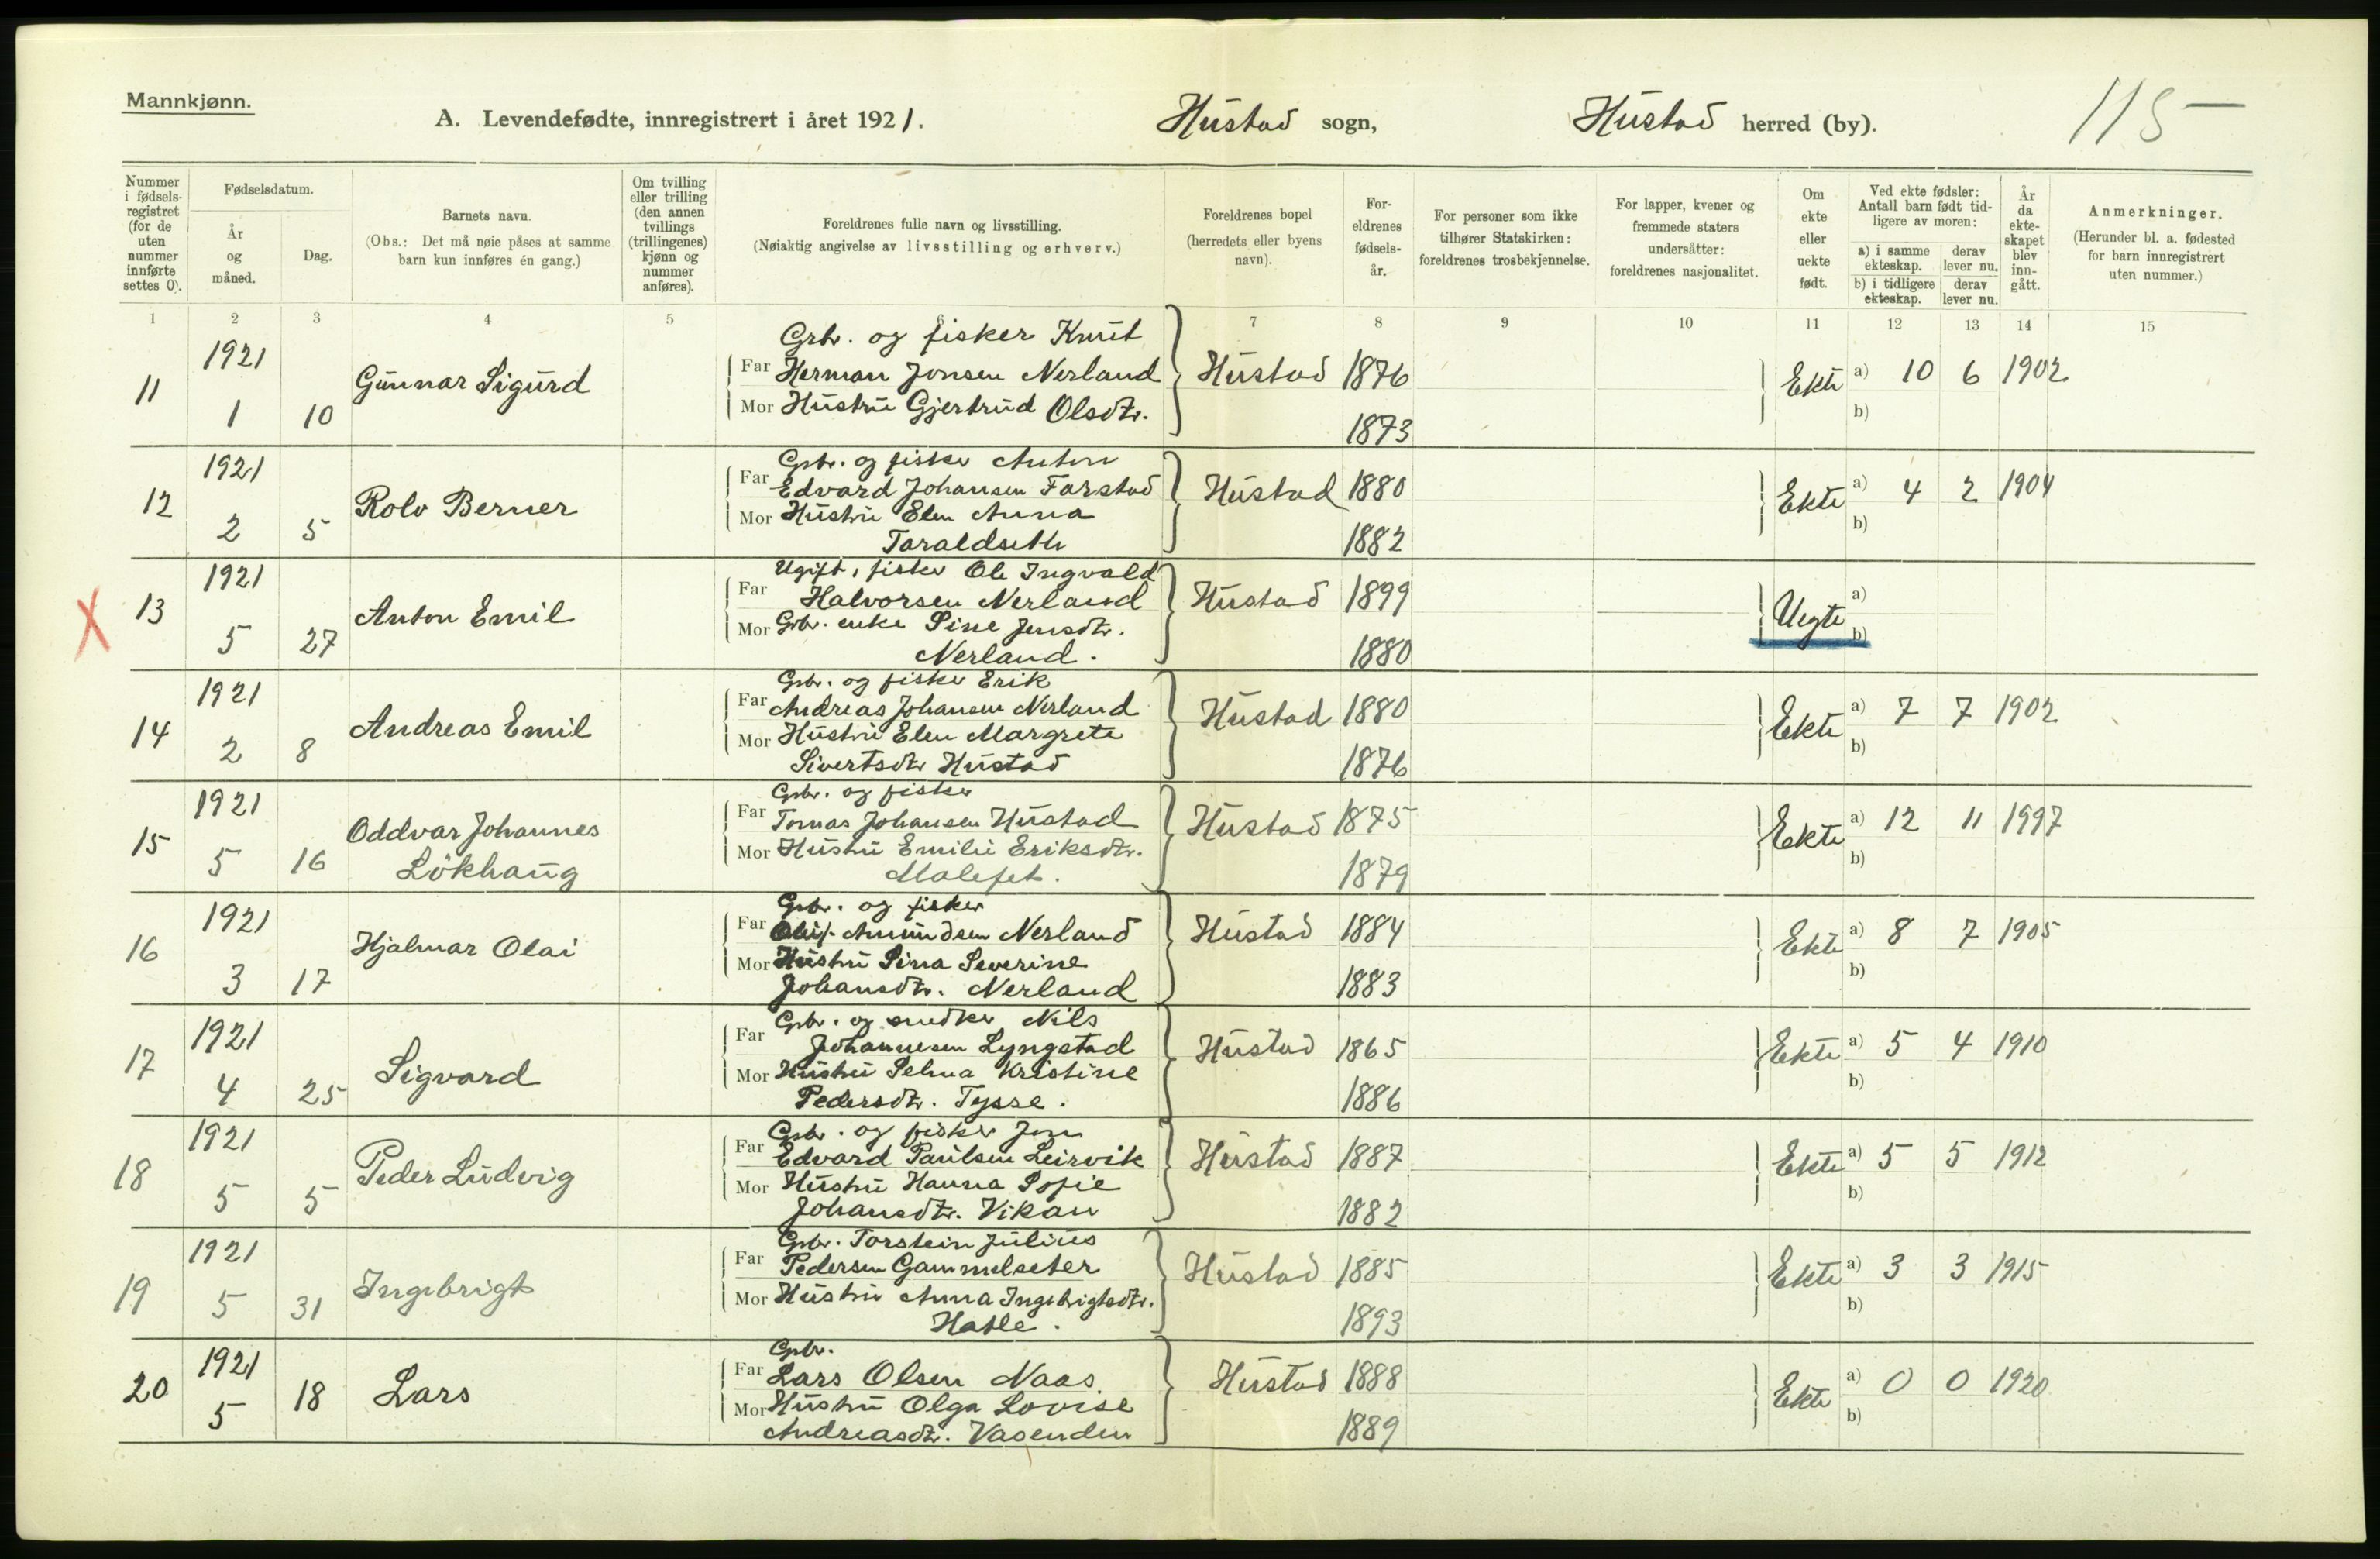 Mannkjønn.
A. Levendefødte, innregistrert i året 1921.
Hustad sogn,
Hustad herred (by).
115
Nummer i fødselsregistret (for de uten nummer innførte settes 0).
Fødselsdatum.
År og måned.
Dag.
Barnets navn.
(Obs.: Det må nøie påses at samme barn kun innføres én gang.)
Om tvilling eller trilling (den annen tvillings (trillingenes) kjønn og nummer anføres).
Foreldrenes fulle navn og livsstilling.
(Nøiaktig angivelse av livsstilling og erhverv.)
Foreldrenes bopel (herredets eller byens navn).
Foreldrenes fødselsår.
For personer som ikke tilhører Statskirken: foreldrenes trosbekjennelse.
For lapper, kvener og fremmede staters undersåtter: foreldrenes nasjonalitet.
Om ekte eller uekte født.
Ved ekte fødsler: Antall barn født tidligere av moren:
a) i samme ekteskap.
derav lever nu.
b) i tidligere ekteskap.
derav lever nu.
År da ekteskapet blev inngått.
Anmerkninger.
(Herunder bl. a. fødested for barn innregistrert uten nummer.)
1 2 3 4 5 6 7 8 9 10 11 12 13 14 15
11 1921 1 10 Gunnar Sigurd
Grbr. og fisker Knut
Far Herman Jonsen Nerland
Mor Hustru Gjertrud Olsdtr.
Hustad 1876 1873 Ekte a) 10 6 1902
b)
12 1921 2 5 Rolv Berner
Grbr. og fisker Anton
Far Edvard Johansen Farstad
Mor Hustru Elen Anna
Taraldseth
Hustad 1880 1882 Ekte a) 4 2 1904
b)
X 13 1921 5 27 Anton Emil
Ugift, fisker Ole Ingvald
Far Halvorsen Nerland
Mor Grbr. enke Sine Jensdtr.
Nerland.
Hustad 1899 1880 Uegte a)
b)
14 1921 2 8 Andreas Emil
Grbr. og fisker Erik
Far Andreas Johansen Nerland
Mor Hustru Elen Margrete
Sivertsdtr Hustad
Hustad 1880 1876 Ekte a) 7 7 1902
b)
15 1921 5 16 Oddvar Johannes
Lökhaug
Grbr. og fisker
Far Tomas Johansen Hustad
Mor Hustru Emilie Eriksdtr.
Malefet.
Hustad 1875 1879 Ekte a) 12 11 1997
b)
16 1921 3 17 Hjalmar Olai
Grbr. og fisker
Far Amundsen Nerland
Mor Hustru Sina Severine
Johansdtr. Nerland
Hustad 1884 1883 Ekte a) 8 7 1905
b)
17 1921 4 25 Sigvard
Grbr. og snedker Nils
Far Johannesen Lyngstad
Mor Hustru Selma Kristine
Pedersdtr. Tysse.
Hustad 1865 1886 Ekte a) 5 4 1910
b)
18 1921 5 5 Peder Ludvig
Grbr. og fisker Jon
Far Edvard Paulsen Leirvik
Mor Hustru Hanna Sofie
Johansdtr. Vikan
Hustad 1887 1882 Ekte a) 5 5 1912
b)
19 1921 5 31 Ingebrigt
Grbr. Torstein Julius
Far Pedersen Gammelseter
Mor Hustru Anna Ingebrigtsdtr.
Hatle.
Hustad 1885 1893 Ekte a) 3 3 1915
b)
20 1921 5 18 Lars
Grbr.
Far Lars Olsen Naas
Mor Hustru Olga Lovise
Andreasdtr. Vasenden
Hustad 1888 1889 Ekte a) 0 0 1920
b)